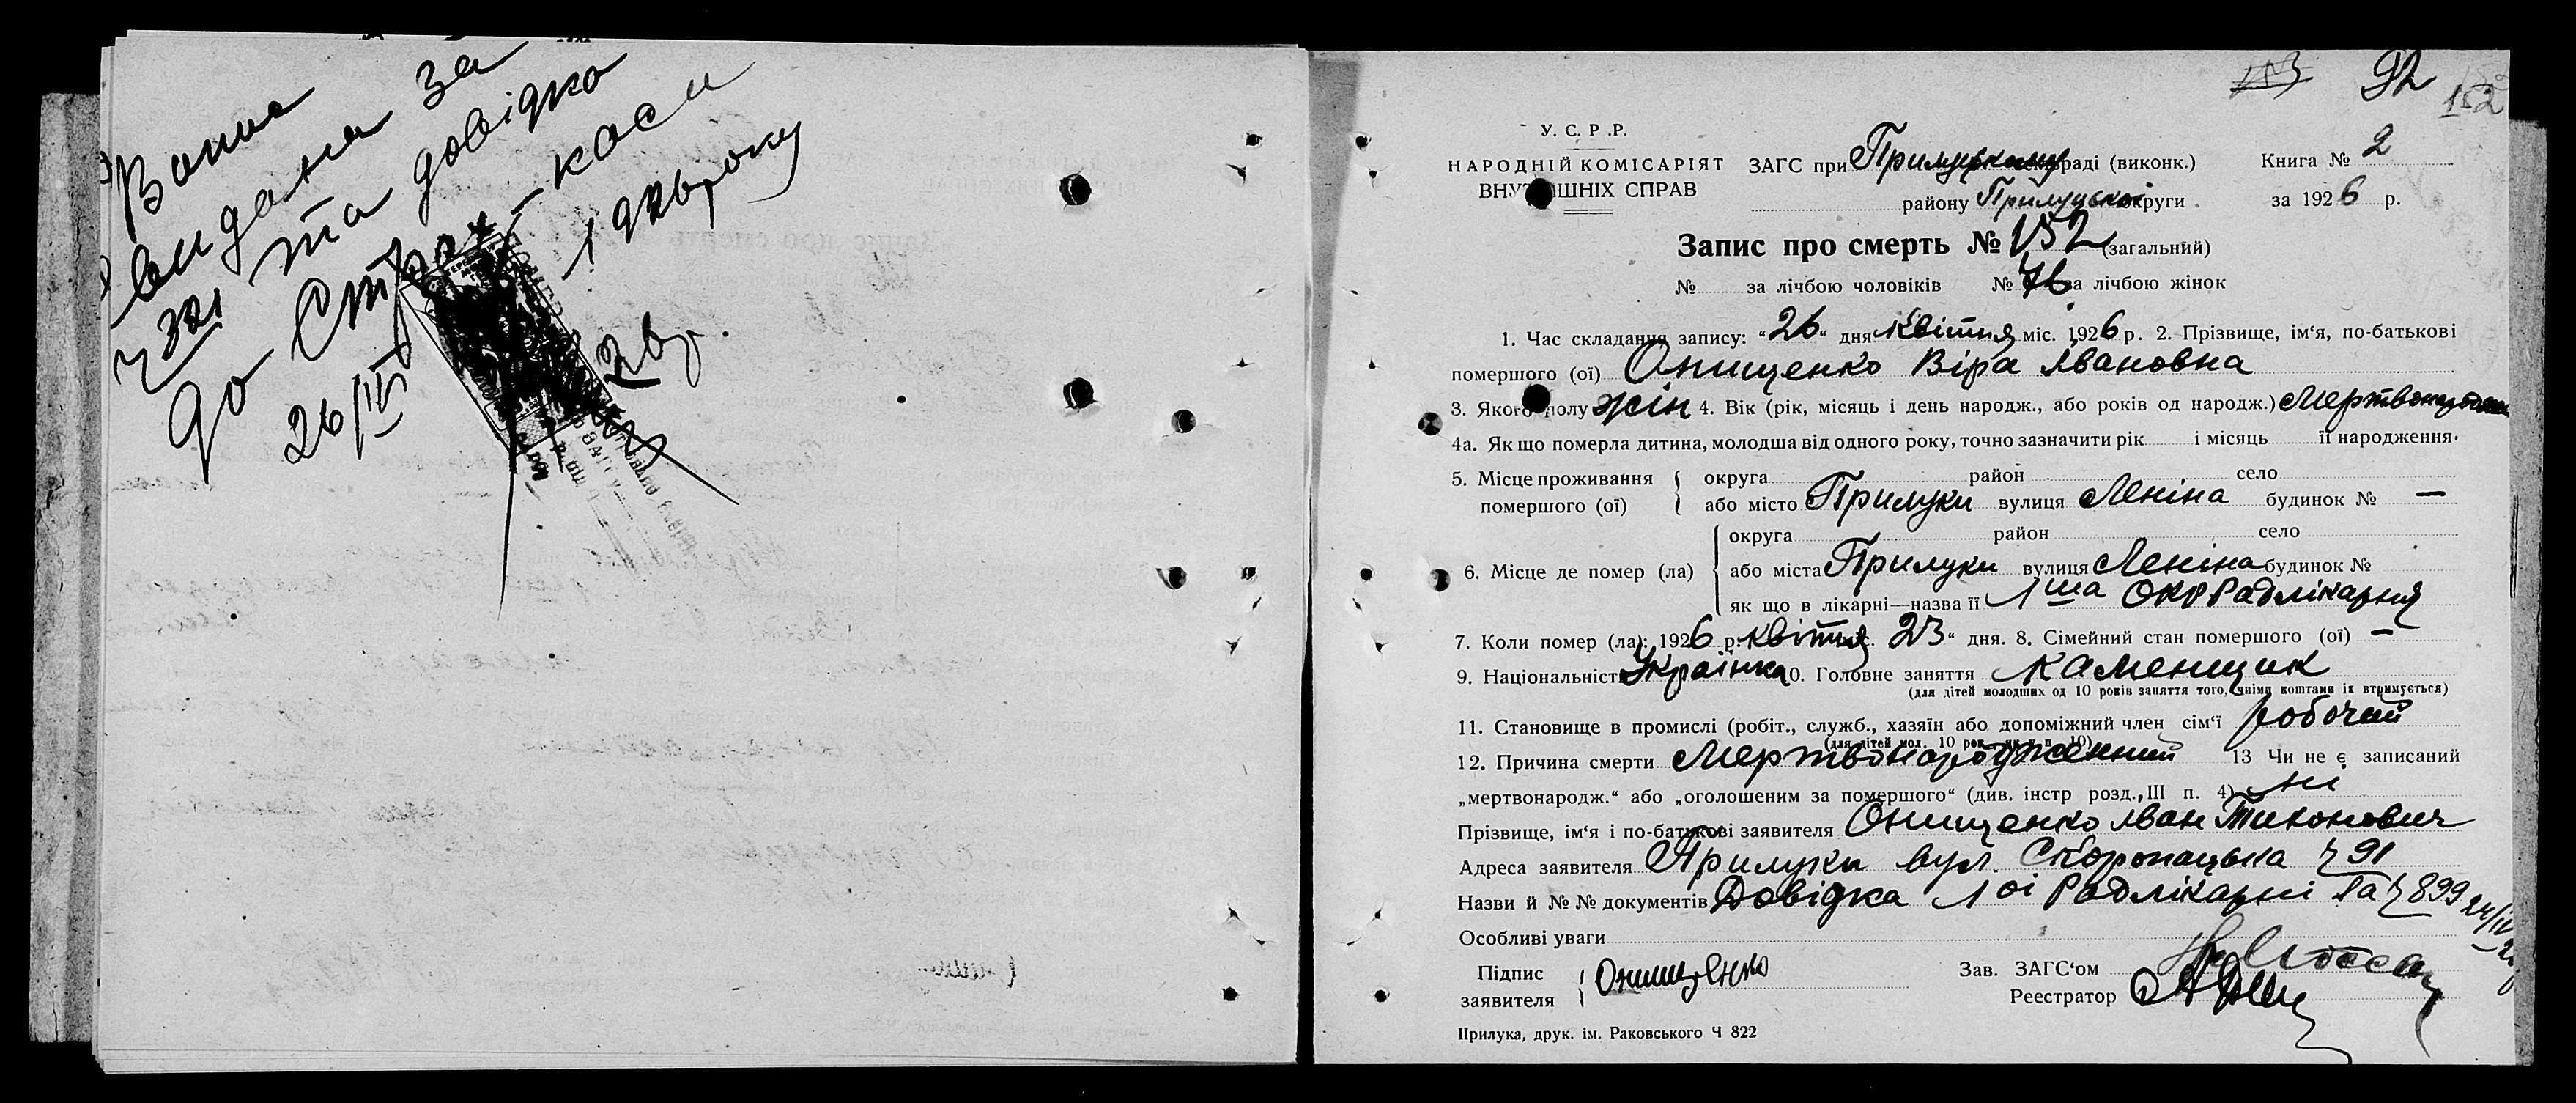 видана за
ч 321 та довідка
до Страх-каси
1926 року
26/IV 26 р.
153 92 152
У. С. Р. Р.
НАРОДНІЙ КОМІСАРІЯТ
ВНУТРІШНІХ СПРАВ
ЗАГС при Прилуцькому раді (виконк.) Книга № 2
району Прилуцької округи за 1926 р.
Запис про смерть № 152 (загальний)
№ за лічбою чоловіків № 76 за лічбою жінок
1. Час складання запису: "26" дня квітня міс. 1926 р. 2. Прізвище, ім'я, по-батькові
помершого (ої) Онищенко Віра Івановна
3. Якого полу жін 4. Вік (рік, місяць і день народж., або років од народж.)
4а. Як що померла дитина, молодша від одного року, точно зазначити рік і місяць її народження.
5. Місце проживання помершого (ої) { округа район село
або місто Прилуки вулиця Леніна будинок № —
6. Місце де помер (ла) { округа район село
або міста Прилуки вулиця Леніна будинок №
як що в лікарні—назва її 1ша Окррадлікарня
7. Коли помер (ла): 1926 р. квітня 23" дня. 8. Сімейний стан помершого (ої) —
9. Національність Українка 10. Головне заняття каменщик
(для дітей молодших од 10 років заняття того, чиїми коштами їх втримується)
11. Становище в промислі (робіт., служб., хазяїн або допоміжний член сім'ї робочий
(для дітей мол. 10 рок. п. 10)
12. Причина смерти Мертвонародженний 13 Чи не є записаний
„мертвонародж." або „оголошеним за помершого" (див. інстр розд., III п. 4) ні
Прізвище, ім'я і по-батькові заявителя Онищенко Іван Тихонович
Адреса заявителя Прилуки вул. Скоропацька ч 91
Назви й №№ документів Довідка 1ої Радлікарні за ч 899 24/IV 26
Особливі уваги
Підпис заявителя { Онищенко
Зав. ЗАГС'ом
Реестратор
Прилука, друк. ім. Раковського Ч 822